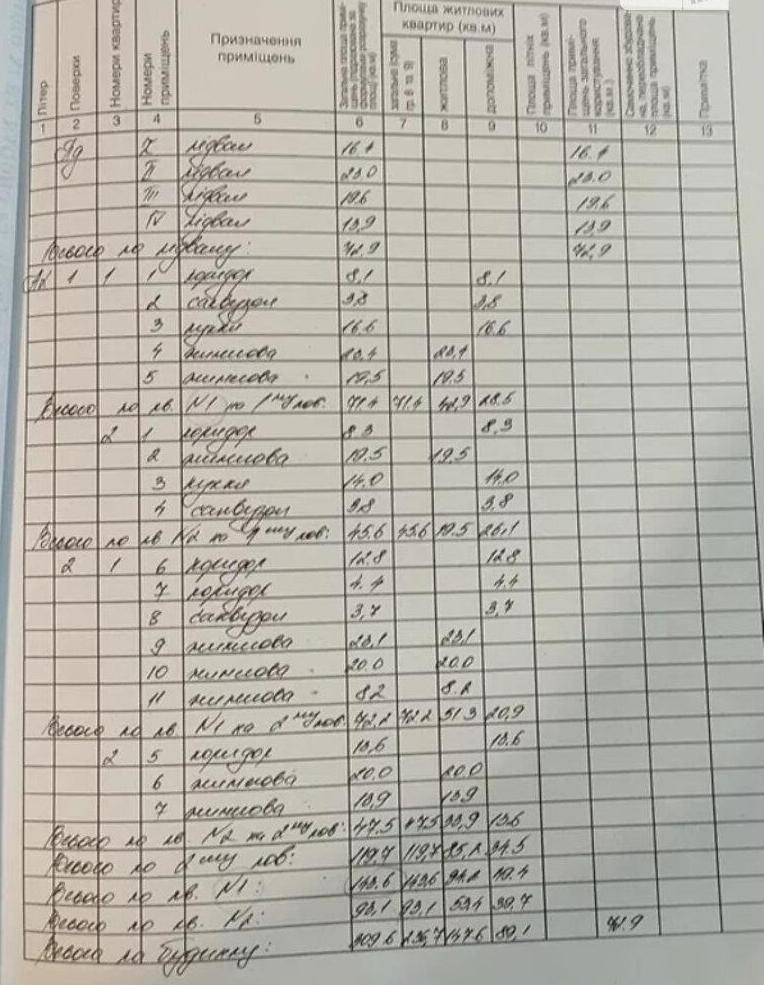 Літер
Поверхи
Номери квартир
Номери приміщень
Призначення приміщень
Площа житлових квартир (кв.м)
загальна (сума гр. 8 та 9)
житлова
допоміжна
Площа літніх приміщень (кв.м)
Площа приміщень загального користування (кв.м.)
Примітка
1 2 3 4 5 6 7 8 9 10 11 12 13
Пд I підвал 16.4 16.4
II підвал 23.0 23.0
III підвал 19.6 19.6
IV підвал 13,9 13,9
Всього по підвалу: 72,9 72,9
1 1 1 коридор 8,1 8,1
2 санвузол 3,8 3,8
3 кухня 16.6 16.6
4 житлова 23,4 23,4
5 житлова 19,5 19.5
Всього по кв. N1 на 1му пов: 71.4 71.4 42,9 28.5
2 1 коридор 8.3 8,3
2 житлова 19.5 19.5
3 кухня 14.0 14.0
4 санвузол 3,8 3,8
Всього по кв N2 на 1му пов: 45.6 45.6 19.5 26,1
2 1 6 коридор 12.8 12.8
7 коридор 4.4 4.4
8 санвузол 3,7 3,7
9 житлова 23,1 23,1
10 житлова 20.0 20.0
11 житлова 8.2 8.2
Всього по кв. N1 на 2му пов: 72,2 72.2 51.3 20,9
2 5 коридор 13,6 13.6
6 житлова 20,0 20.0
7 житлова 13,9 13,9
Всього по кв. N2 на 2му пов: 47.5 47.5 33,9 13.6
Всього по 2му пов: 119.7 119,7 85,2 34.5
Всього по кв. N1: 143.6 143,6 94.2 49.4
Всього по кв. N2: 93,1 93,1 53,4 39,7
Всього по будинку: 309.6 236,7 147.6 89,1